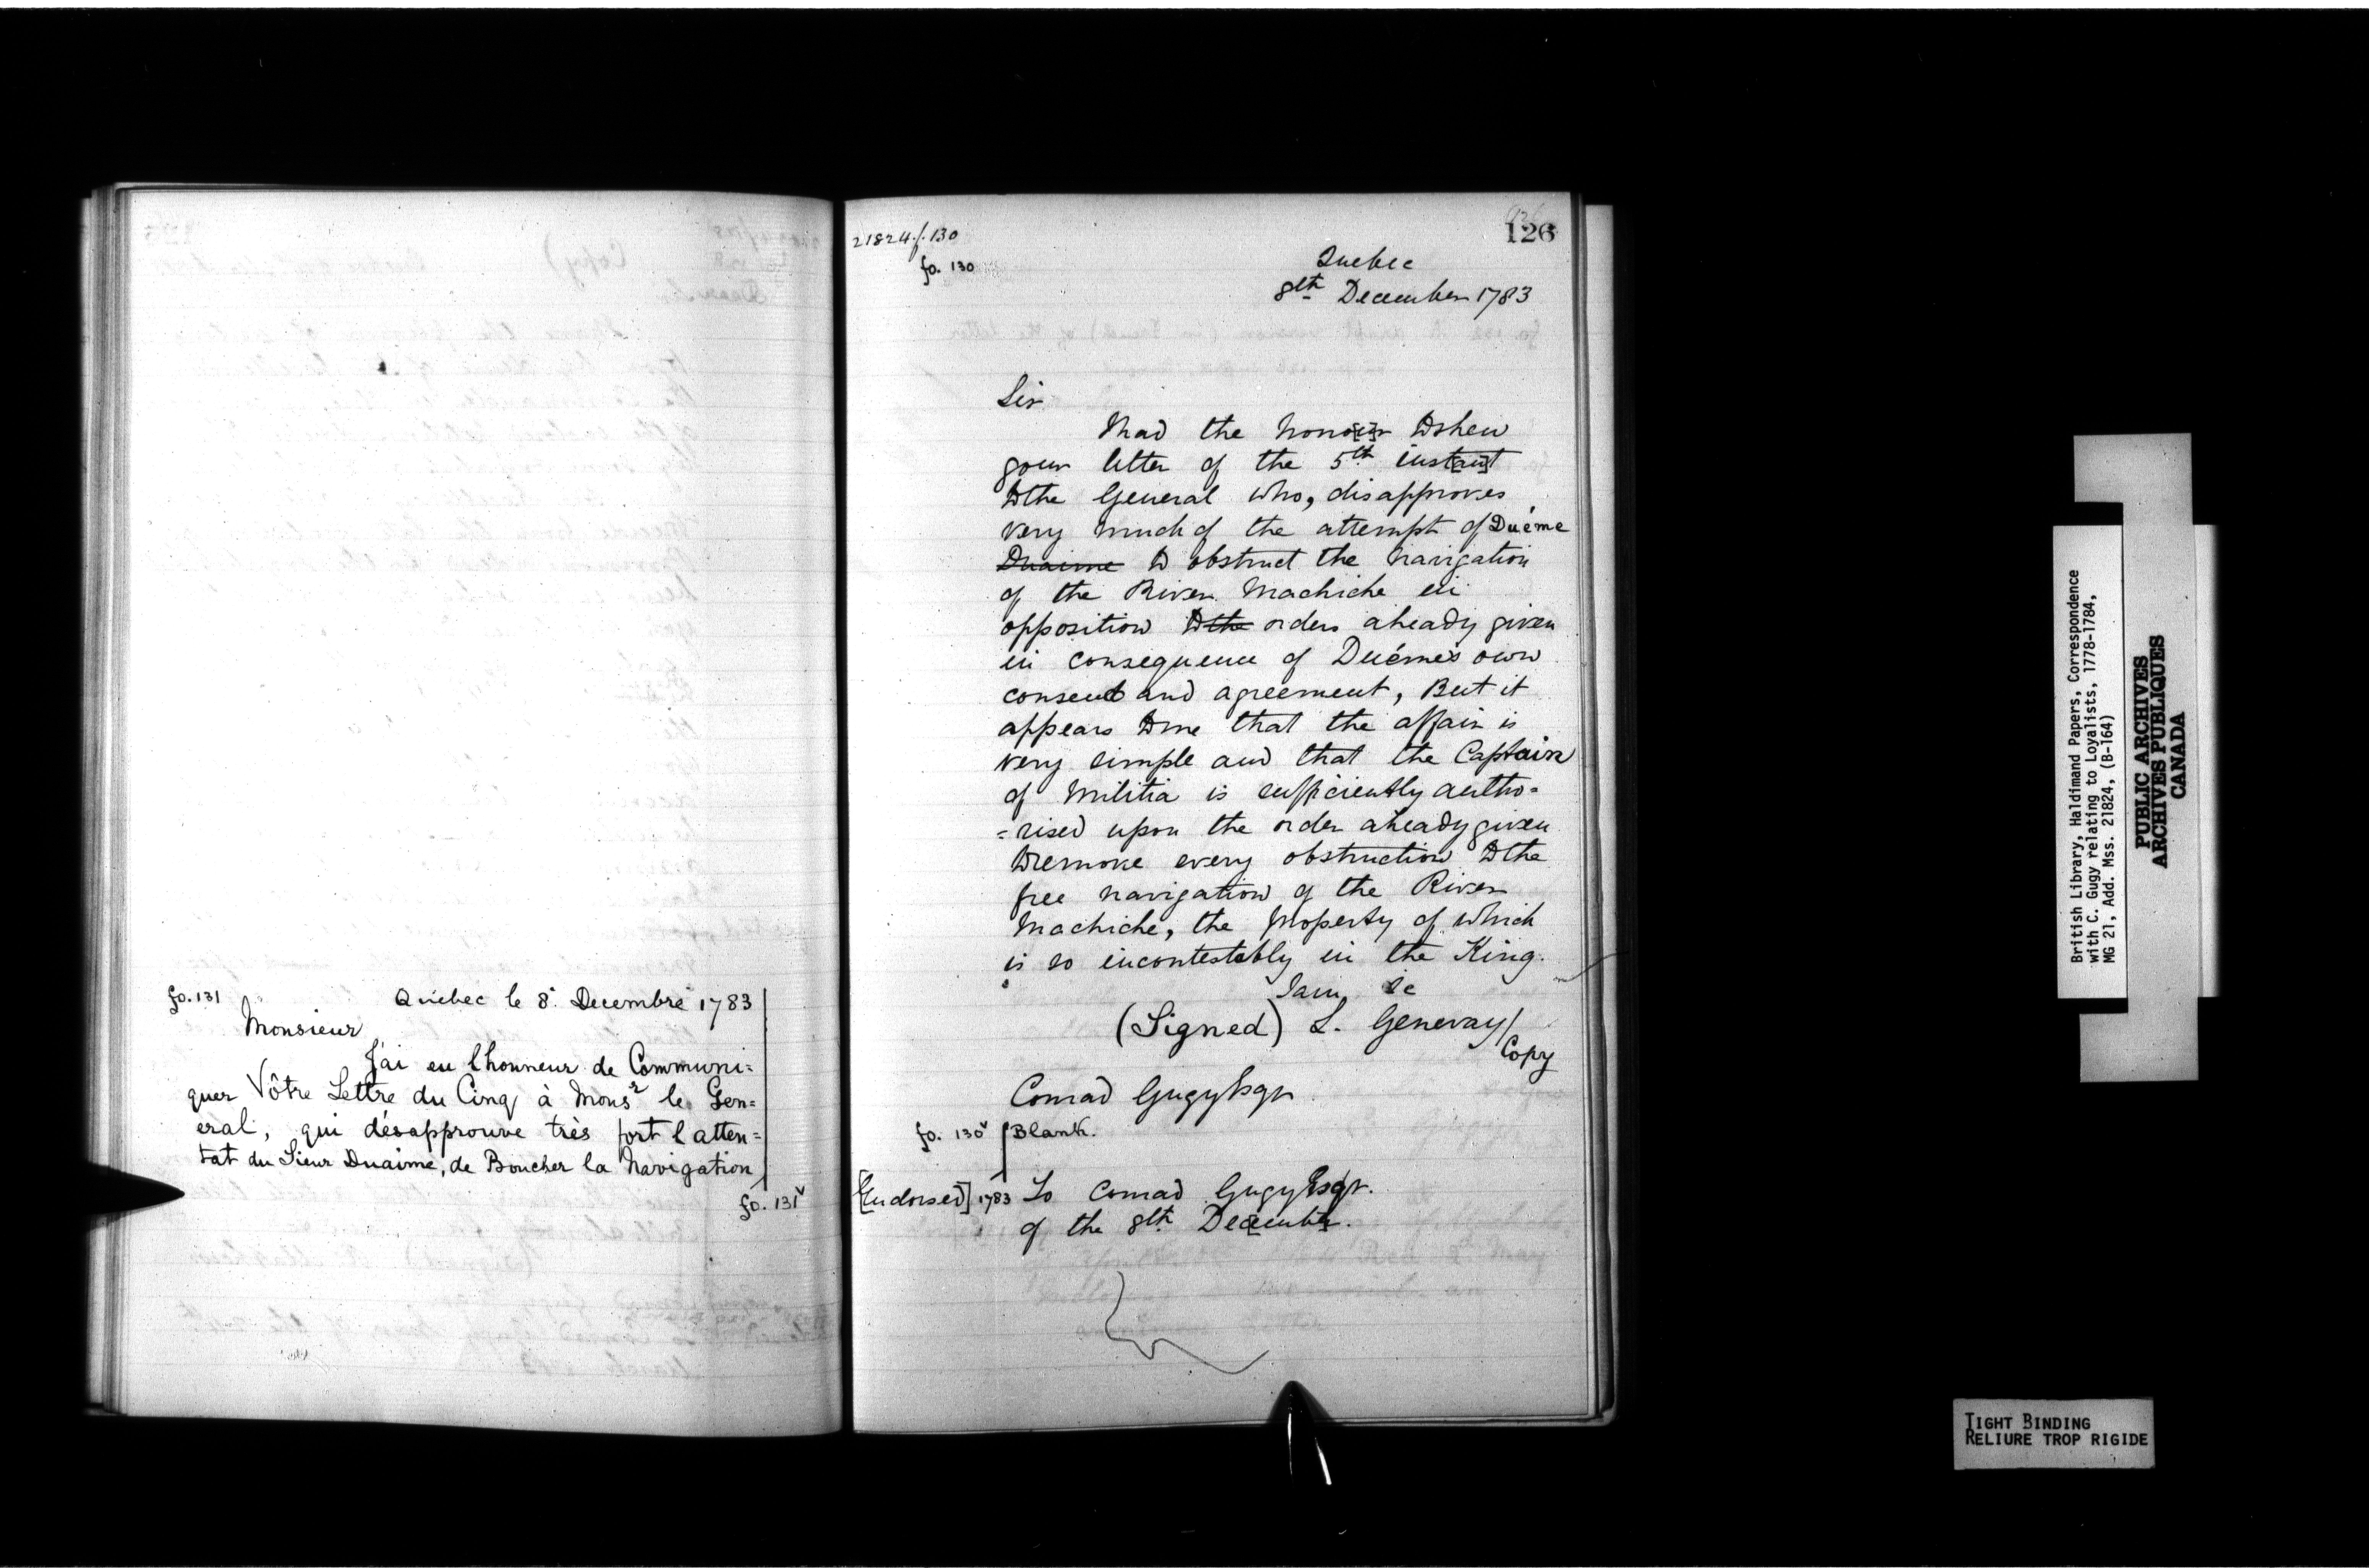 fo. 131
Quebec le 8. Decembre 1783
Monsieur
J'ai eu l'honneur de Communi=
quer Vôtre Lettre du Cinq à Monsr le Gen=
eral, qui désapprouve très fort l'atten=
tat du Sieur Duaime, de Boucher la Navigation
fo. 131v
21824./.130
fo. 130
126
Quebec
8th December 1783
Sir
I had the hono[u]r to shew
your letter of the 5th inst[an]t
to the General who, disapproves
very much of the attempt of Duéme
Duaime to obstruct the Navigation
of the River Machiche in
opposition to the orders already given
in consequence of Duéme's own
consent and agreement, But it
appears to me that the affair is
very simple and that the Captain
of Militia is sufficiently autho=
=rised upon the order already given
to remove every obstruction to the
free navigation of the River
Machiche, the Property of which
is so incontestably in the King.
I am, &c
(Signed) L. Genevay/
Copy
Conrad Gugy Esqr
fo. 130v Blank.
[Endorsed] 1783 To Conrad Gugy Esqr.
of the 8th De[cembe]r.
British Library, Haldimand Papers, Correspondence
with C. Gugy relating to Loyalists, 1778-1784,
MG 21, Add. Mss. 21824, (B-164)
PUBLIC ARCHIVES
ARCHIVES PUBLIQUES
CANADA
TIGHT BINDING
RELIURE TROP RIGIDE